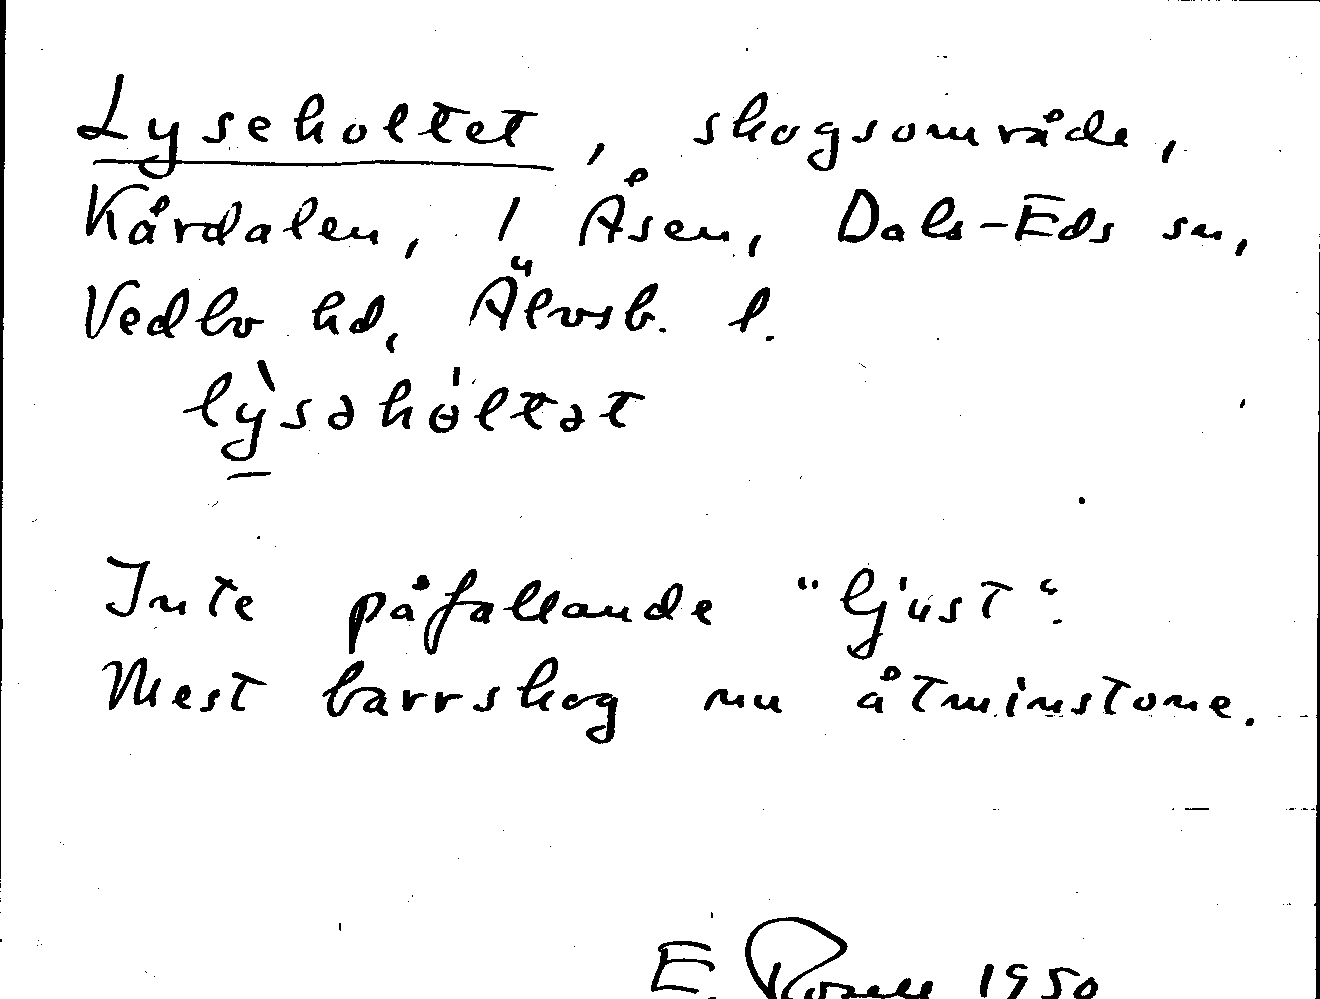 Lyseholtet, skogsområde,
Kårdalen, 1 Åsen, Dals-Eds sn,
Vedbo hd, Älvsb. l.
lỳsəhòltət
Inte påfallande "ljust".
Mest barrskog nu åtminstone.
E. Rosell 1950